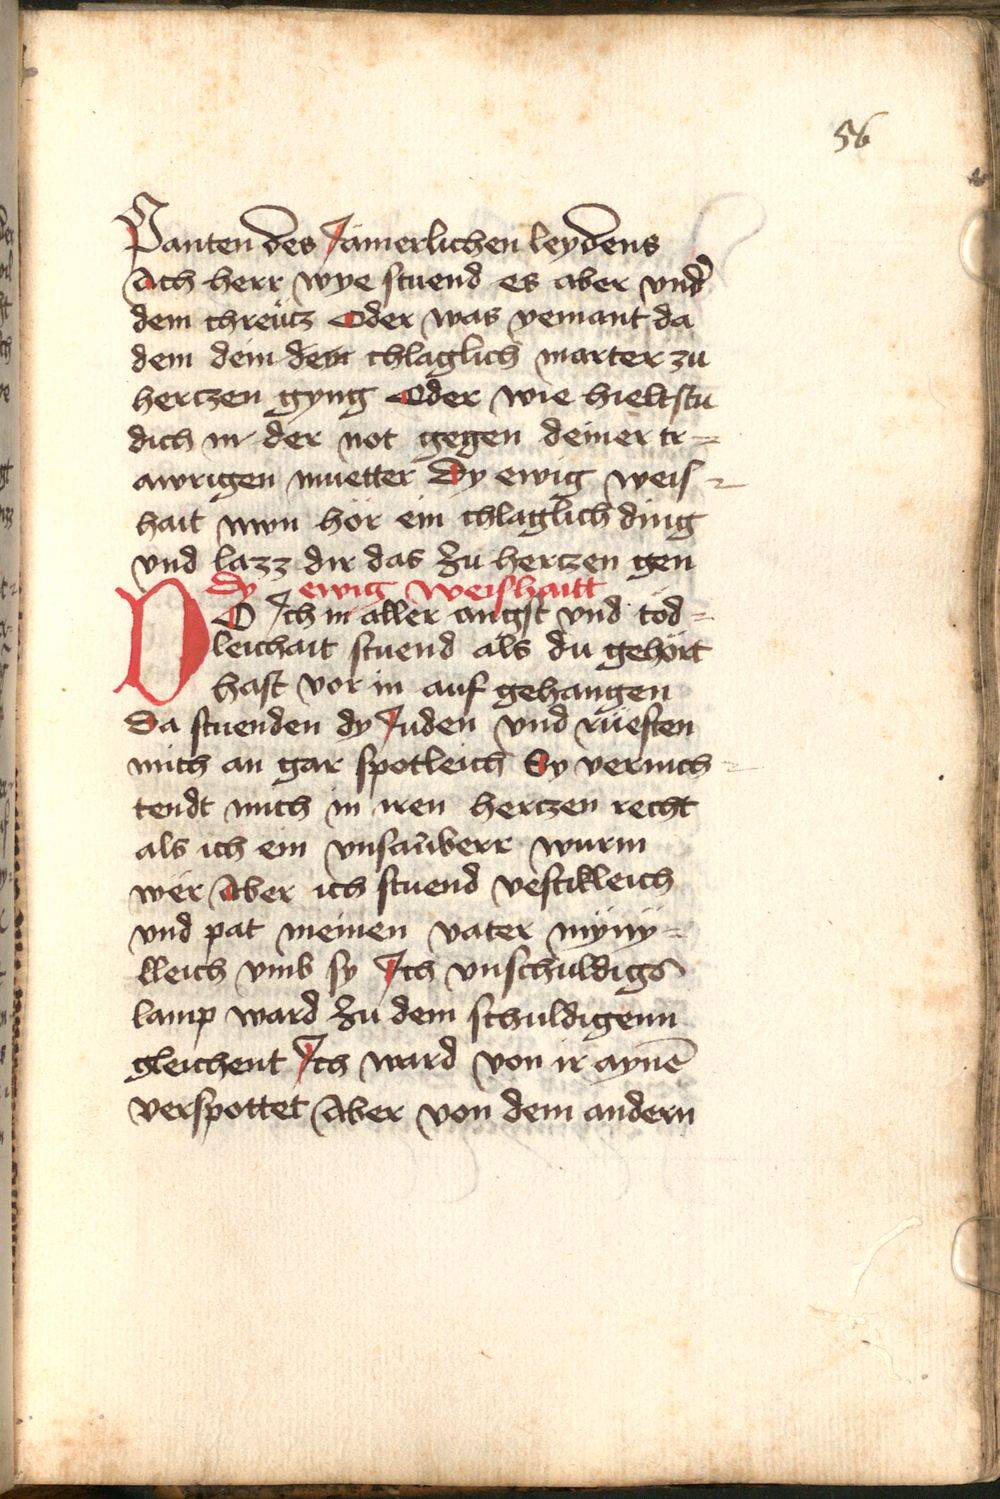 56
Panten des Jamerlichen leydens
Ach herr wye stuend es aber vnd᷑
dem chreücz Oder was yemant da
dem dein dem chlaglich marter zu
herczen gyng Oder wie hieltstu
dich in der not gegen deiner tr=
awrigen muetter Dy ewig weis=
hait nwn hör ein chlaglich ding
vnd lazz dir das zu herczen gen
Dy ewig weishaitt
DO Ich in aller angst vnd tod=
leichait stuend als du gehört
hast vor in auf gehangen
Da stuenden dy Juden vnd rüeften
mich an gar spotleich Sy vernich=
tendt mich in iren herczen recht
als ich ein vnsaẅberr wurm
wer Aber ich stuend vestikleich
vnd pat meinen vater mÿnÿ=
kleich vmb sy Ich vnschuldigs
lamp ward zu dem schuldigenn
gleichent Ich ward von ir aynē
verspottet Aber von dem andern